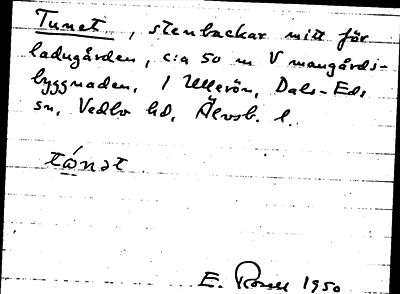 Tunet, stenbackar mitt för
ladugården, c:a 50 m V mangårds-
byggnaden, 1 Ulerön, Dals-Eds
sn, Vedbo hd, Älvsb. l.
tónət
E. 1950